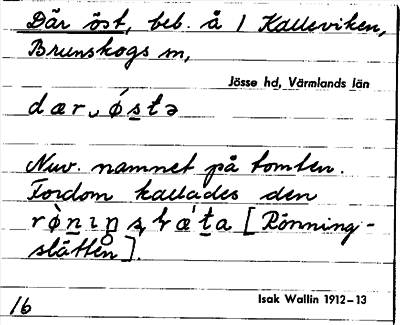 Där öst, beb. å 1 Kalleviken,
Brunskogs sn,
Jösse hd, Värmlands län
dær ‿ǿs̲tə
Nuv. namnet på tomten.
Fordom kallades den
[Rönning-
slätten].
16
Isak Wallin 1912–13